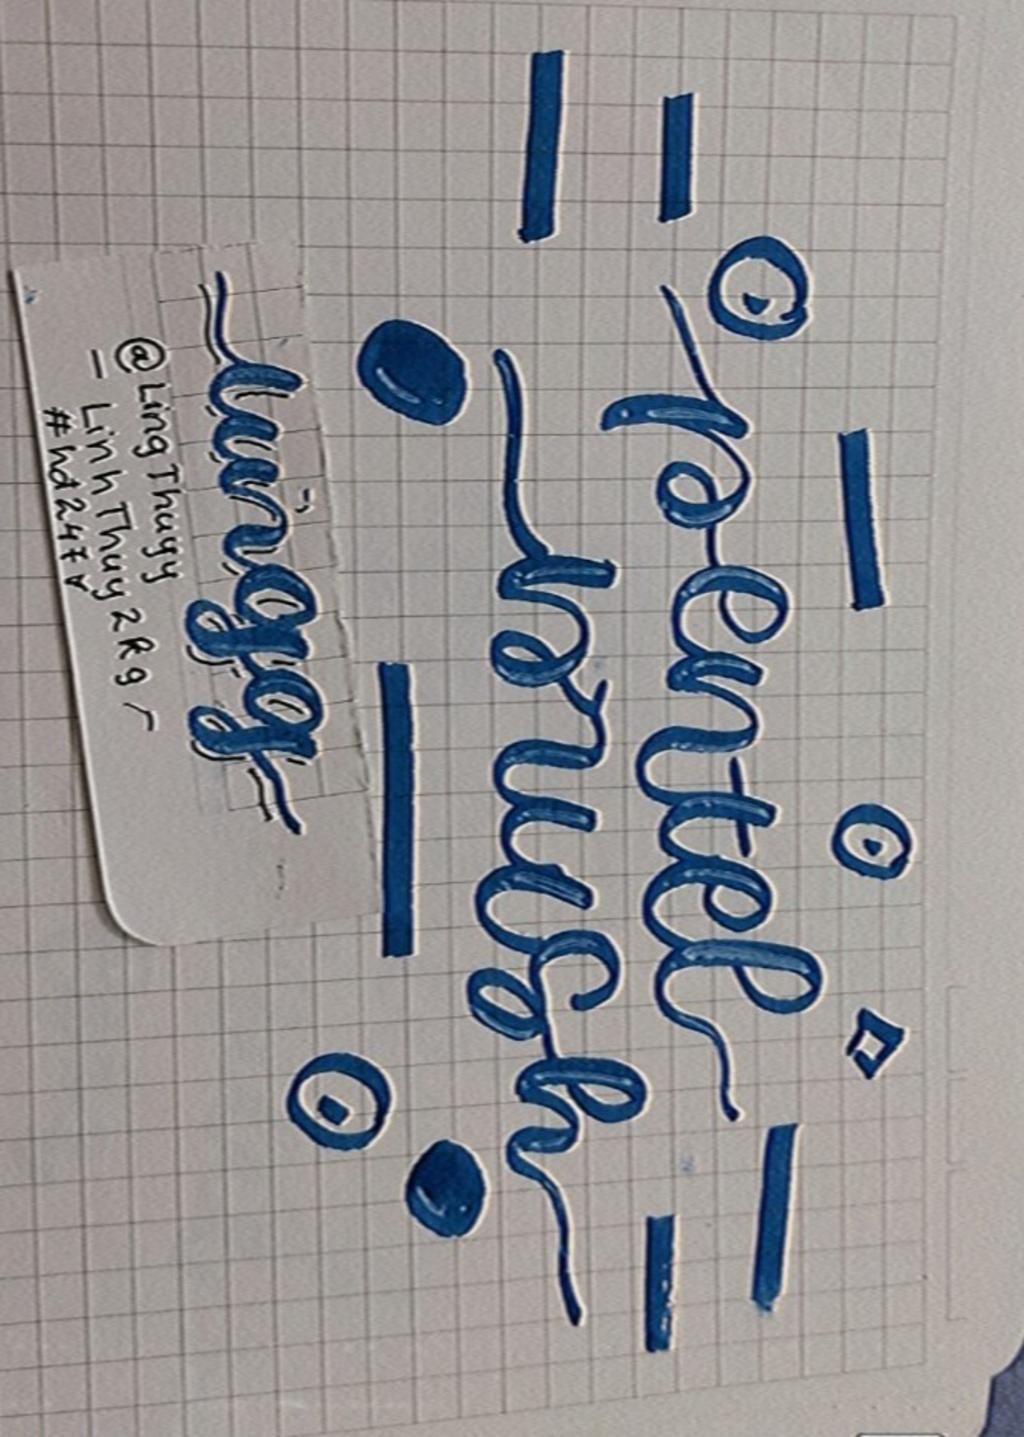 Pentel
brush
lingg
@LingThuyy
– LinhThuy2k9
#hd247